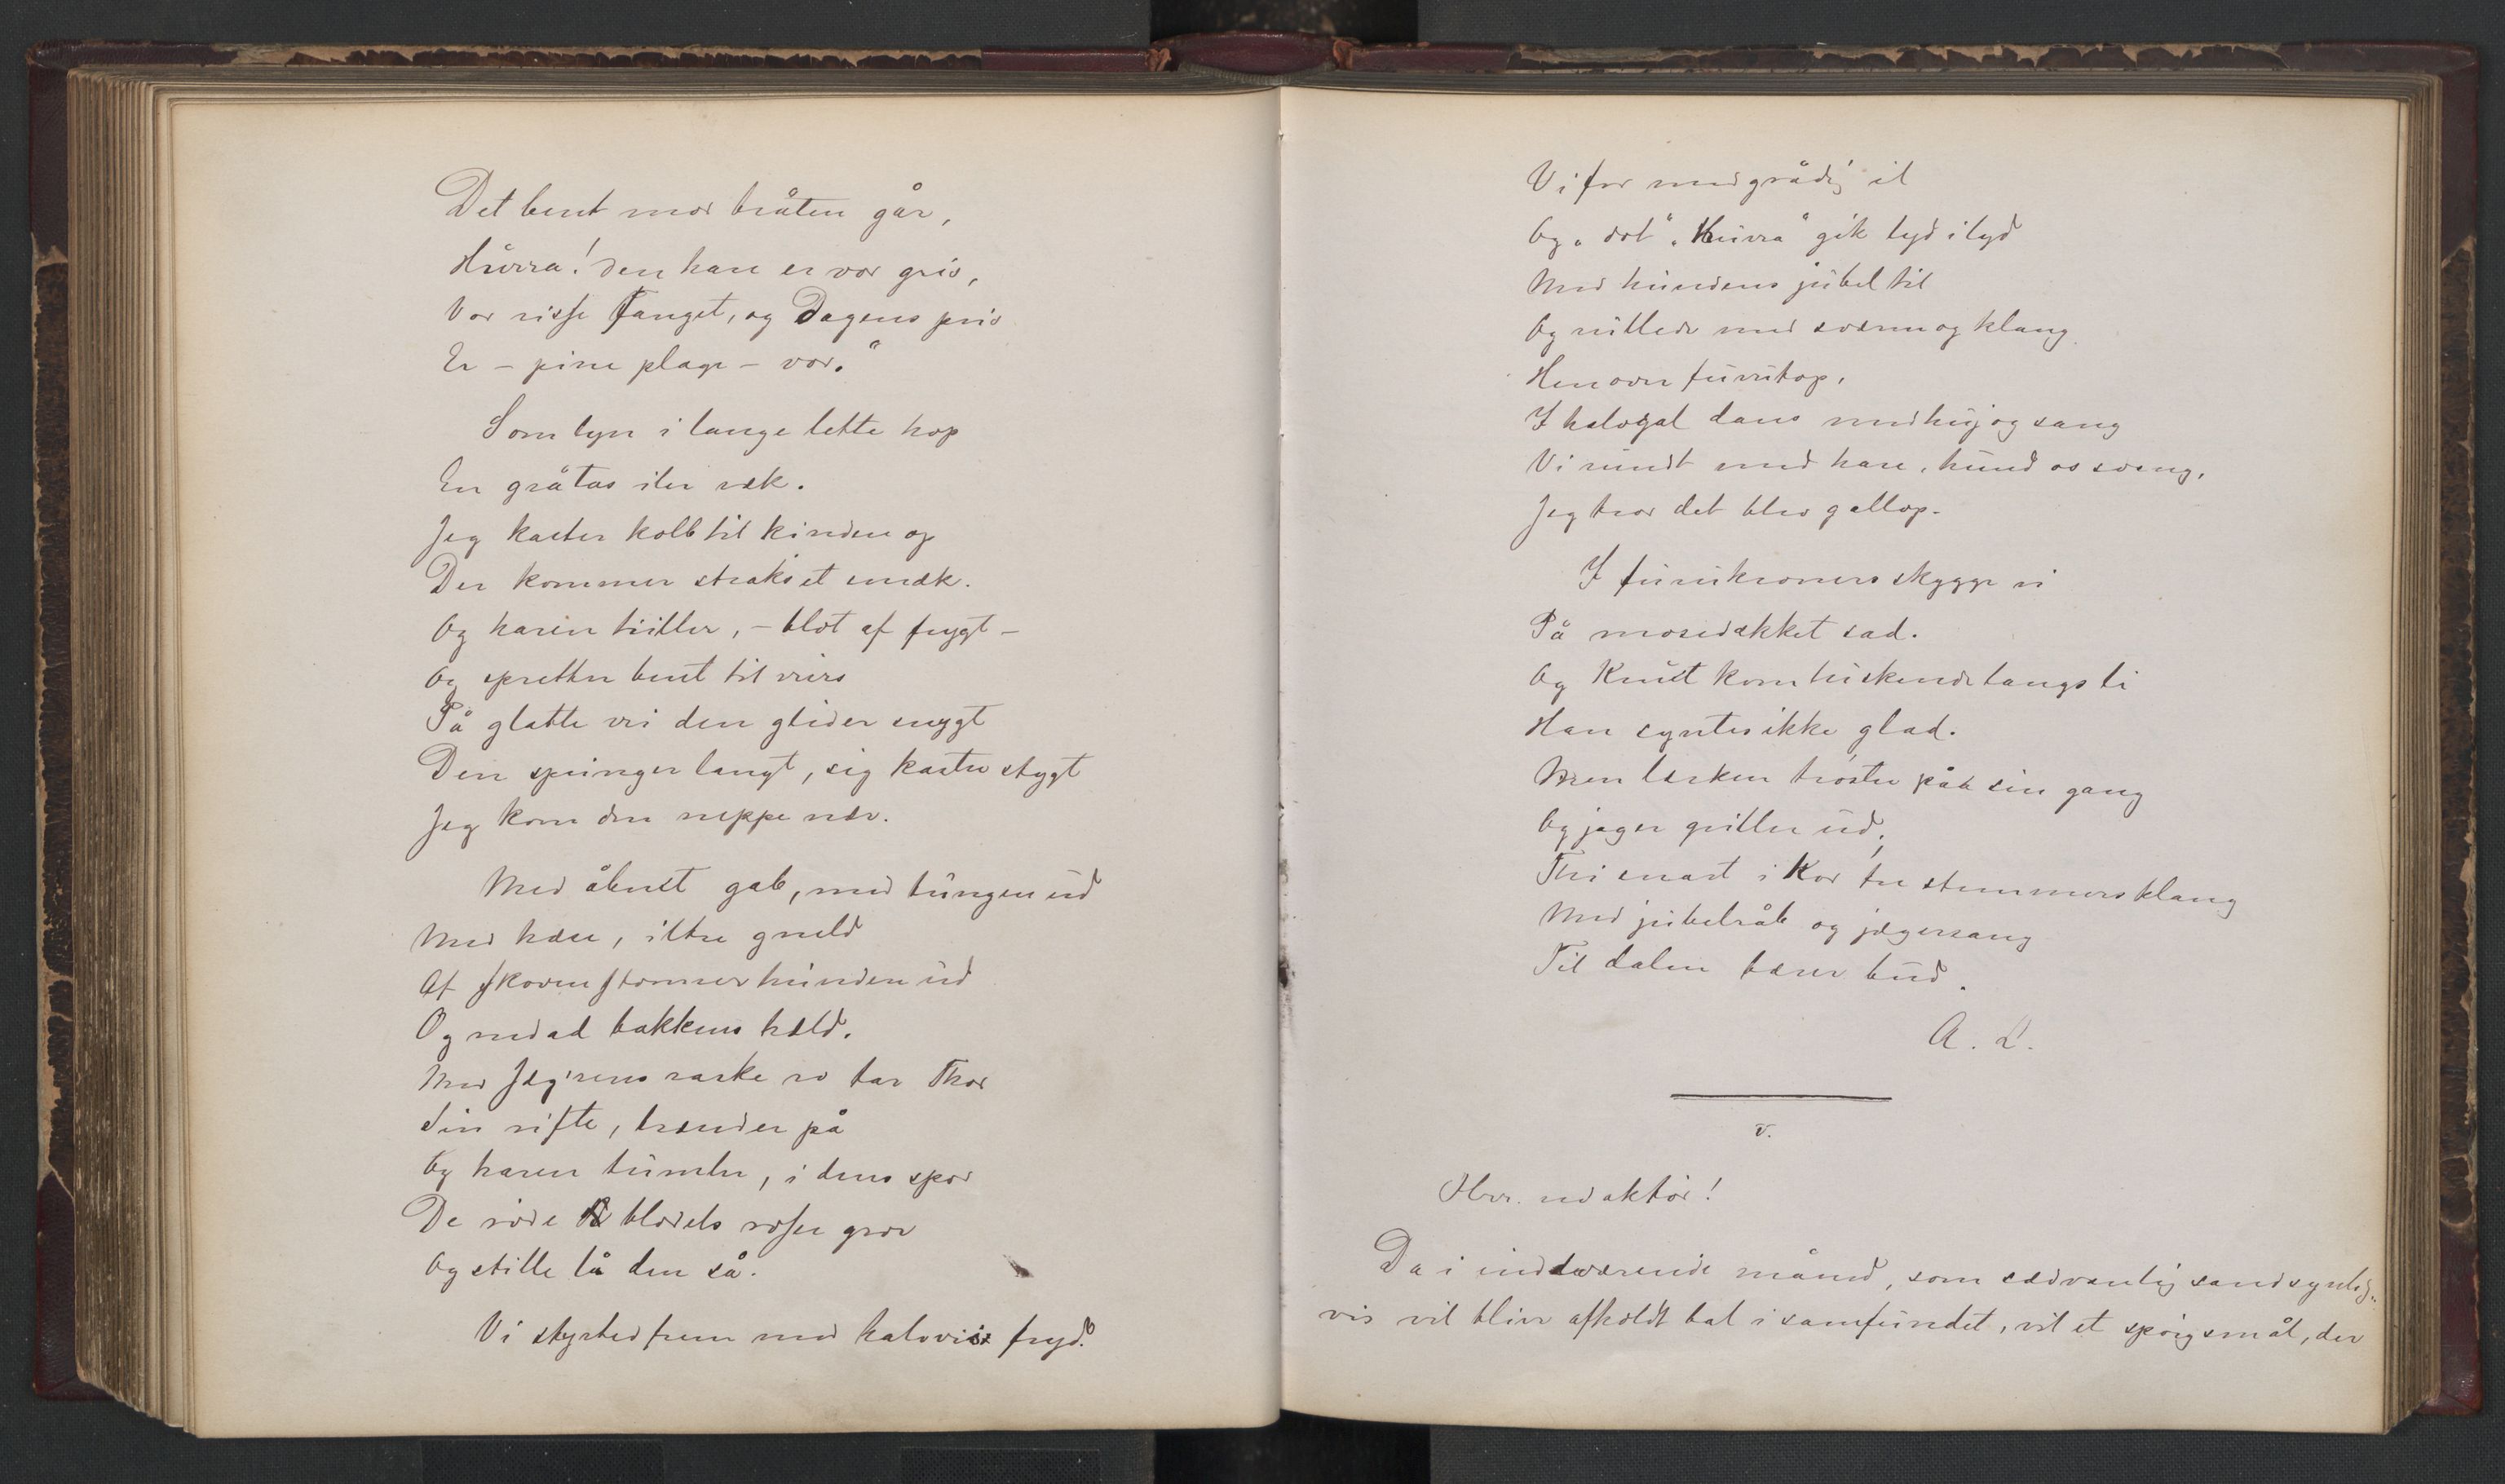 Det bent mod bråten går,
Hurra! den hare er vor gris,
Vor visse Fanget, og Dagens pris
Er – pine plage – vor."
Som lyn i lange lette hop
En gråtas iler væk.
Jeg kaster kolb til kinden op
Der kommer straks et smæk.
Og haren triller, – blot af frygt –
Og spretter bent til veirs
På glatte vei den glider snygt
Den springer langt, sig kaster stygt
Jeg kom den neppe nær.
Med åbnet gab, med tungen ud
Med hæse, iltre gneld
Af skoven stormer hunden ud
Og nedad bakkens held.
Med Jæg'rens raske ro tar Thor
Sin rifle, brænder på
Og haren tumler, i dens spor
De røde blodets roser gror
Og stille lå den så.
Vi styrted frem med halvvis fryd.
Vi for med grådig il
Og "død" "Hurra" gik lyd i lyd
Med hundens jubel til
Og rullede med sværm og klang
Hen over furutop,
I halvgal dans med huj og sang
Vi rundt med hare, hund os sveng,
Jeg tror det blev gallop.
I furukroners skygge vi
På mosedækket sad.
Og Knut kom luskende langs li
Han syntes ikke glad.
Men lærken trøster på sin gang
Og jager griller ud,
Thi snart i Kor tre stemmers klang
Med jubelråb og jægersang
Til dalen bærer bud.
A. L.
V.
Herr redaktør!
Da i indeværende måned, som sædvanlig sandsynlig-
vis vil blive afholdt bal i samfundet, vil et spørgsmål, der